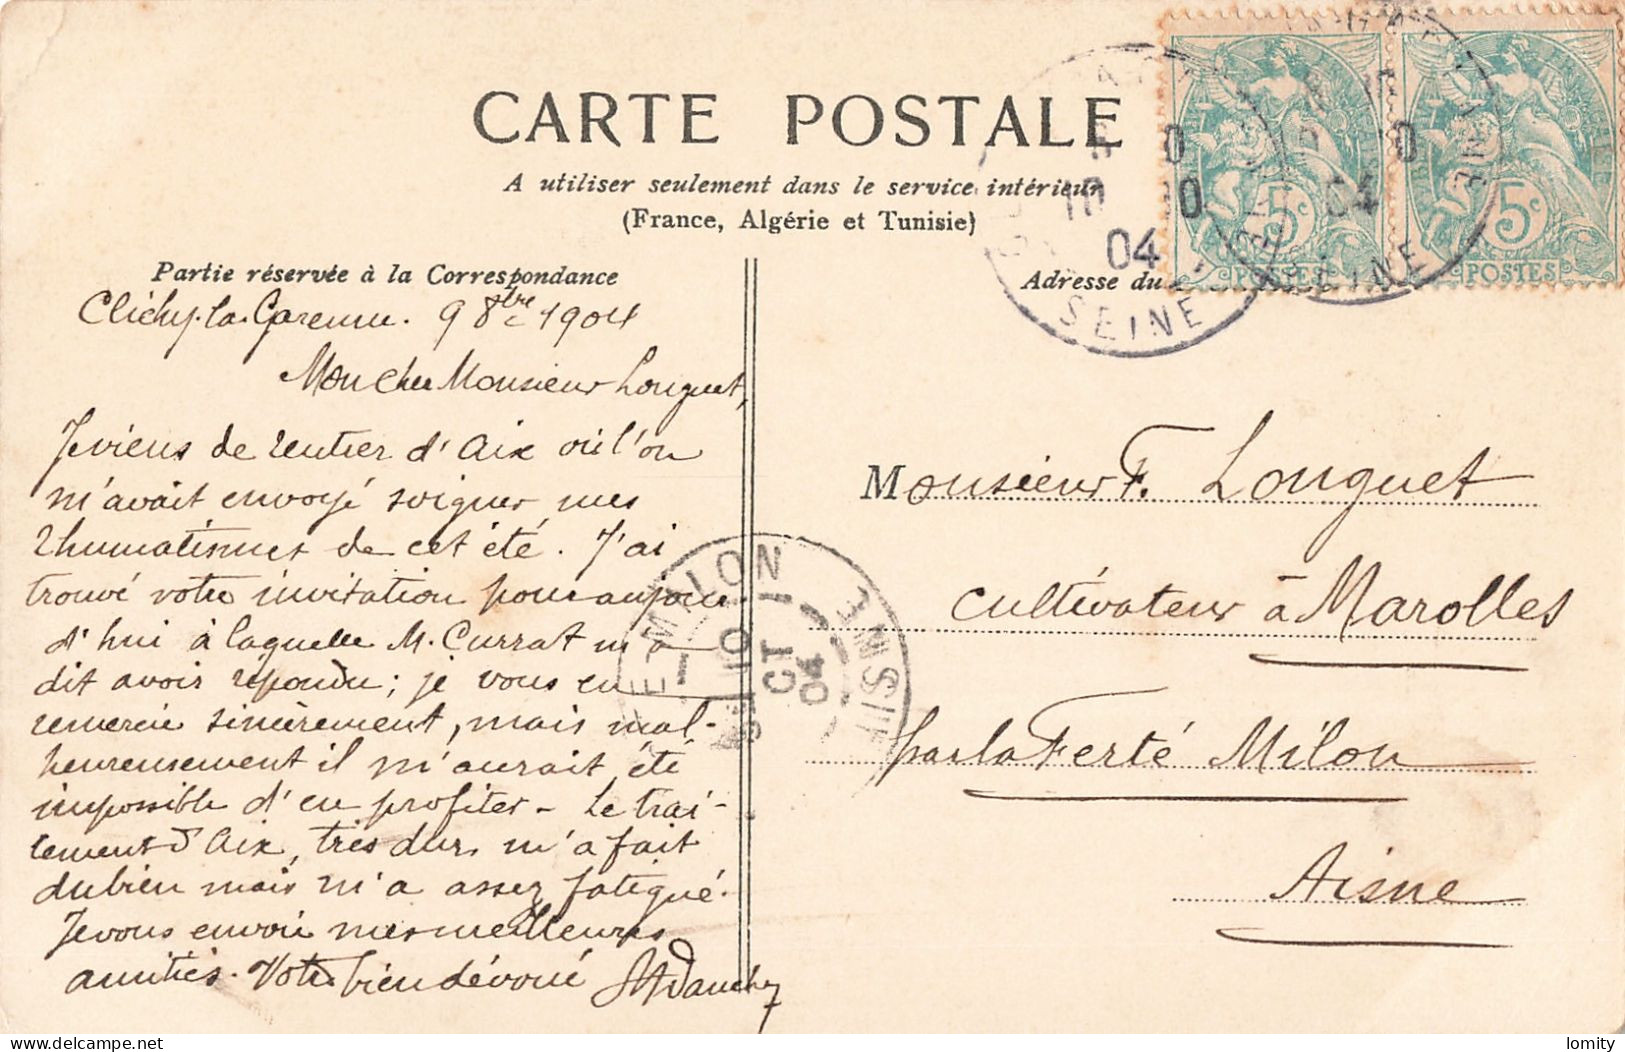 CARTE POSTALE
A utiliser seulement dans le service intérieur
(France, Algérie et Tunisie)
Partie réservée à la Correspondance
Adresse du
Clichy-la-Garenne. 9 8bre 1904
Mon cher Monsieur Longuet,
Je viens de rentrer d'Aix où l'on
m'avait envoyé soigner mes
rhumatismes de cet été. J'ai
trouvé votre invitation pour aujour
d'hui à laquelle M. Currat m'a
dit avoir répondu ; je vous en
remercie sincèrement, mais mal-
heureusement il m'aurait été
impossible d'en profiter - Le trai-
tement d'Aix, très dur, m'a fait
du bien mais m'a assez fatigué.
Je vous envoie mes meilleures
amitiés. Votre bien dévoué
Monsieur F. Longuet
cultivateur à Marolles
par la Ferté Milon
Aisne
5c
POSTES
5c
POSTES
04
SEINE
04
SEINE
MILON
10
OCT
04
AISNE
https://www.delcampe.net
lomity